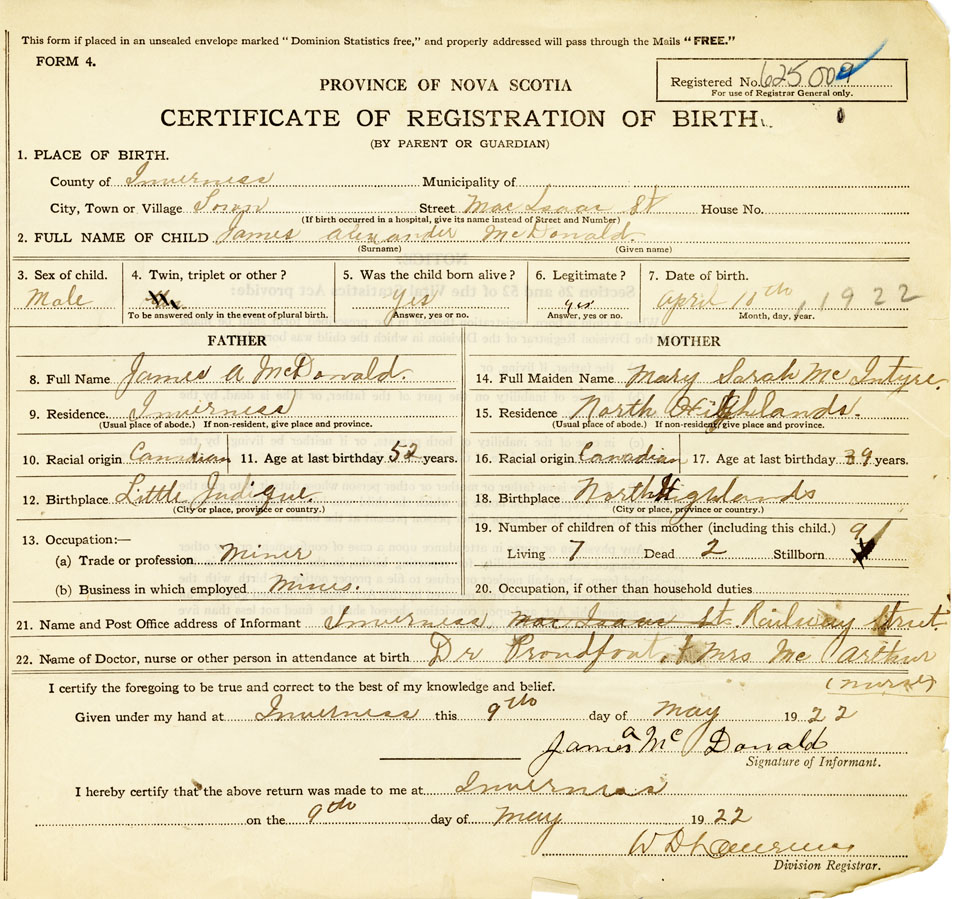 This form if placed in an unsealed envelope marked "Dominion Statistics free," and properly addressed will pass through the Mails "FREE."
FORM 4.
PROVINCE OF NOVA SCOTIA
Registered No. 625009
For use of Registrar General only.
CERTIFICATE OF REGISTRATION OF BIRTH.
(BY PARENT OR GUARDIAN)
1. PLACE OF BIRTH.
County of Inverness Municipality of
City, Town or Village Town Street Mac Isaac St House No.
(If birth occurred in a hospital, give its name instead of Street and Number)
2. FULL NAME OF CHILD James Alexander McDonald.
(Surname) (Given name)
3. Sex of child. 4. Twin, triplet or other? 5. Was the child born alive? 6. Legitimate? 7. Date of birth.
Male yes yes April 10th, 1922
To be answered only in the event of plural birth. Answer, yes or no. Answer, yes or no. Month, day, year.
FATHER MOTHER
8. Full Name James A McDonald. 14. Full Maiden Name Mary Sarah Mc Intyre.
9. Residence. Inverness 15. Residence North Highlands.
(Usual place of abode.) If non-resident, give place and province. (Usual place of abode.) If non-resident, give place and province.
10. Racial origin Canadian 11. Age at last birthday 52 years. 16. Racial origin Canadian 17. Age at last birthday 39 years.
12. Birthplace Little Judique. 18. Birthplace North Highlands
(City or place, province or country.) (City or place, province or country.)
13. Occupation:— 19. Number of children of this mother (including this child.) 9
(a) Trade or profession Miner Living 7 Dead 2 Stillborn
(b) Business in which employed Mines. 20. Occupation, if other than household duties
21. Name and Post Office address of Informant Inverness Mac Isaac St Railway Street.
22. Name of Doctor, nurse or other person in attendance at birth Dr Proudfoot, & Mrs Mc Arthur
(nurse)
I certify the foregoing to be true and correct to the best of my knowledge and belief.
Given under my hand at Inverness this 9th day of May 1922
James A Mc Donald
Signature of Informant.
I hereby certify that the above return was made to me at Inverness
on the 9th day of May 1922
Division Registrar.